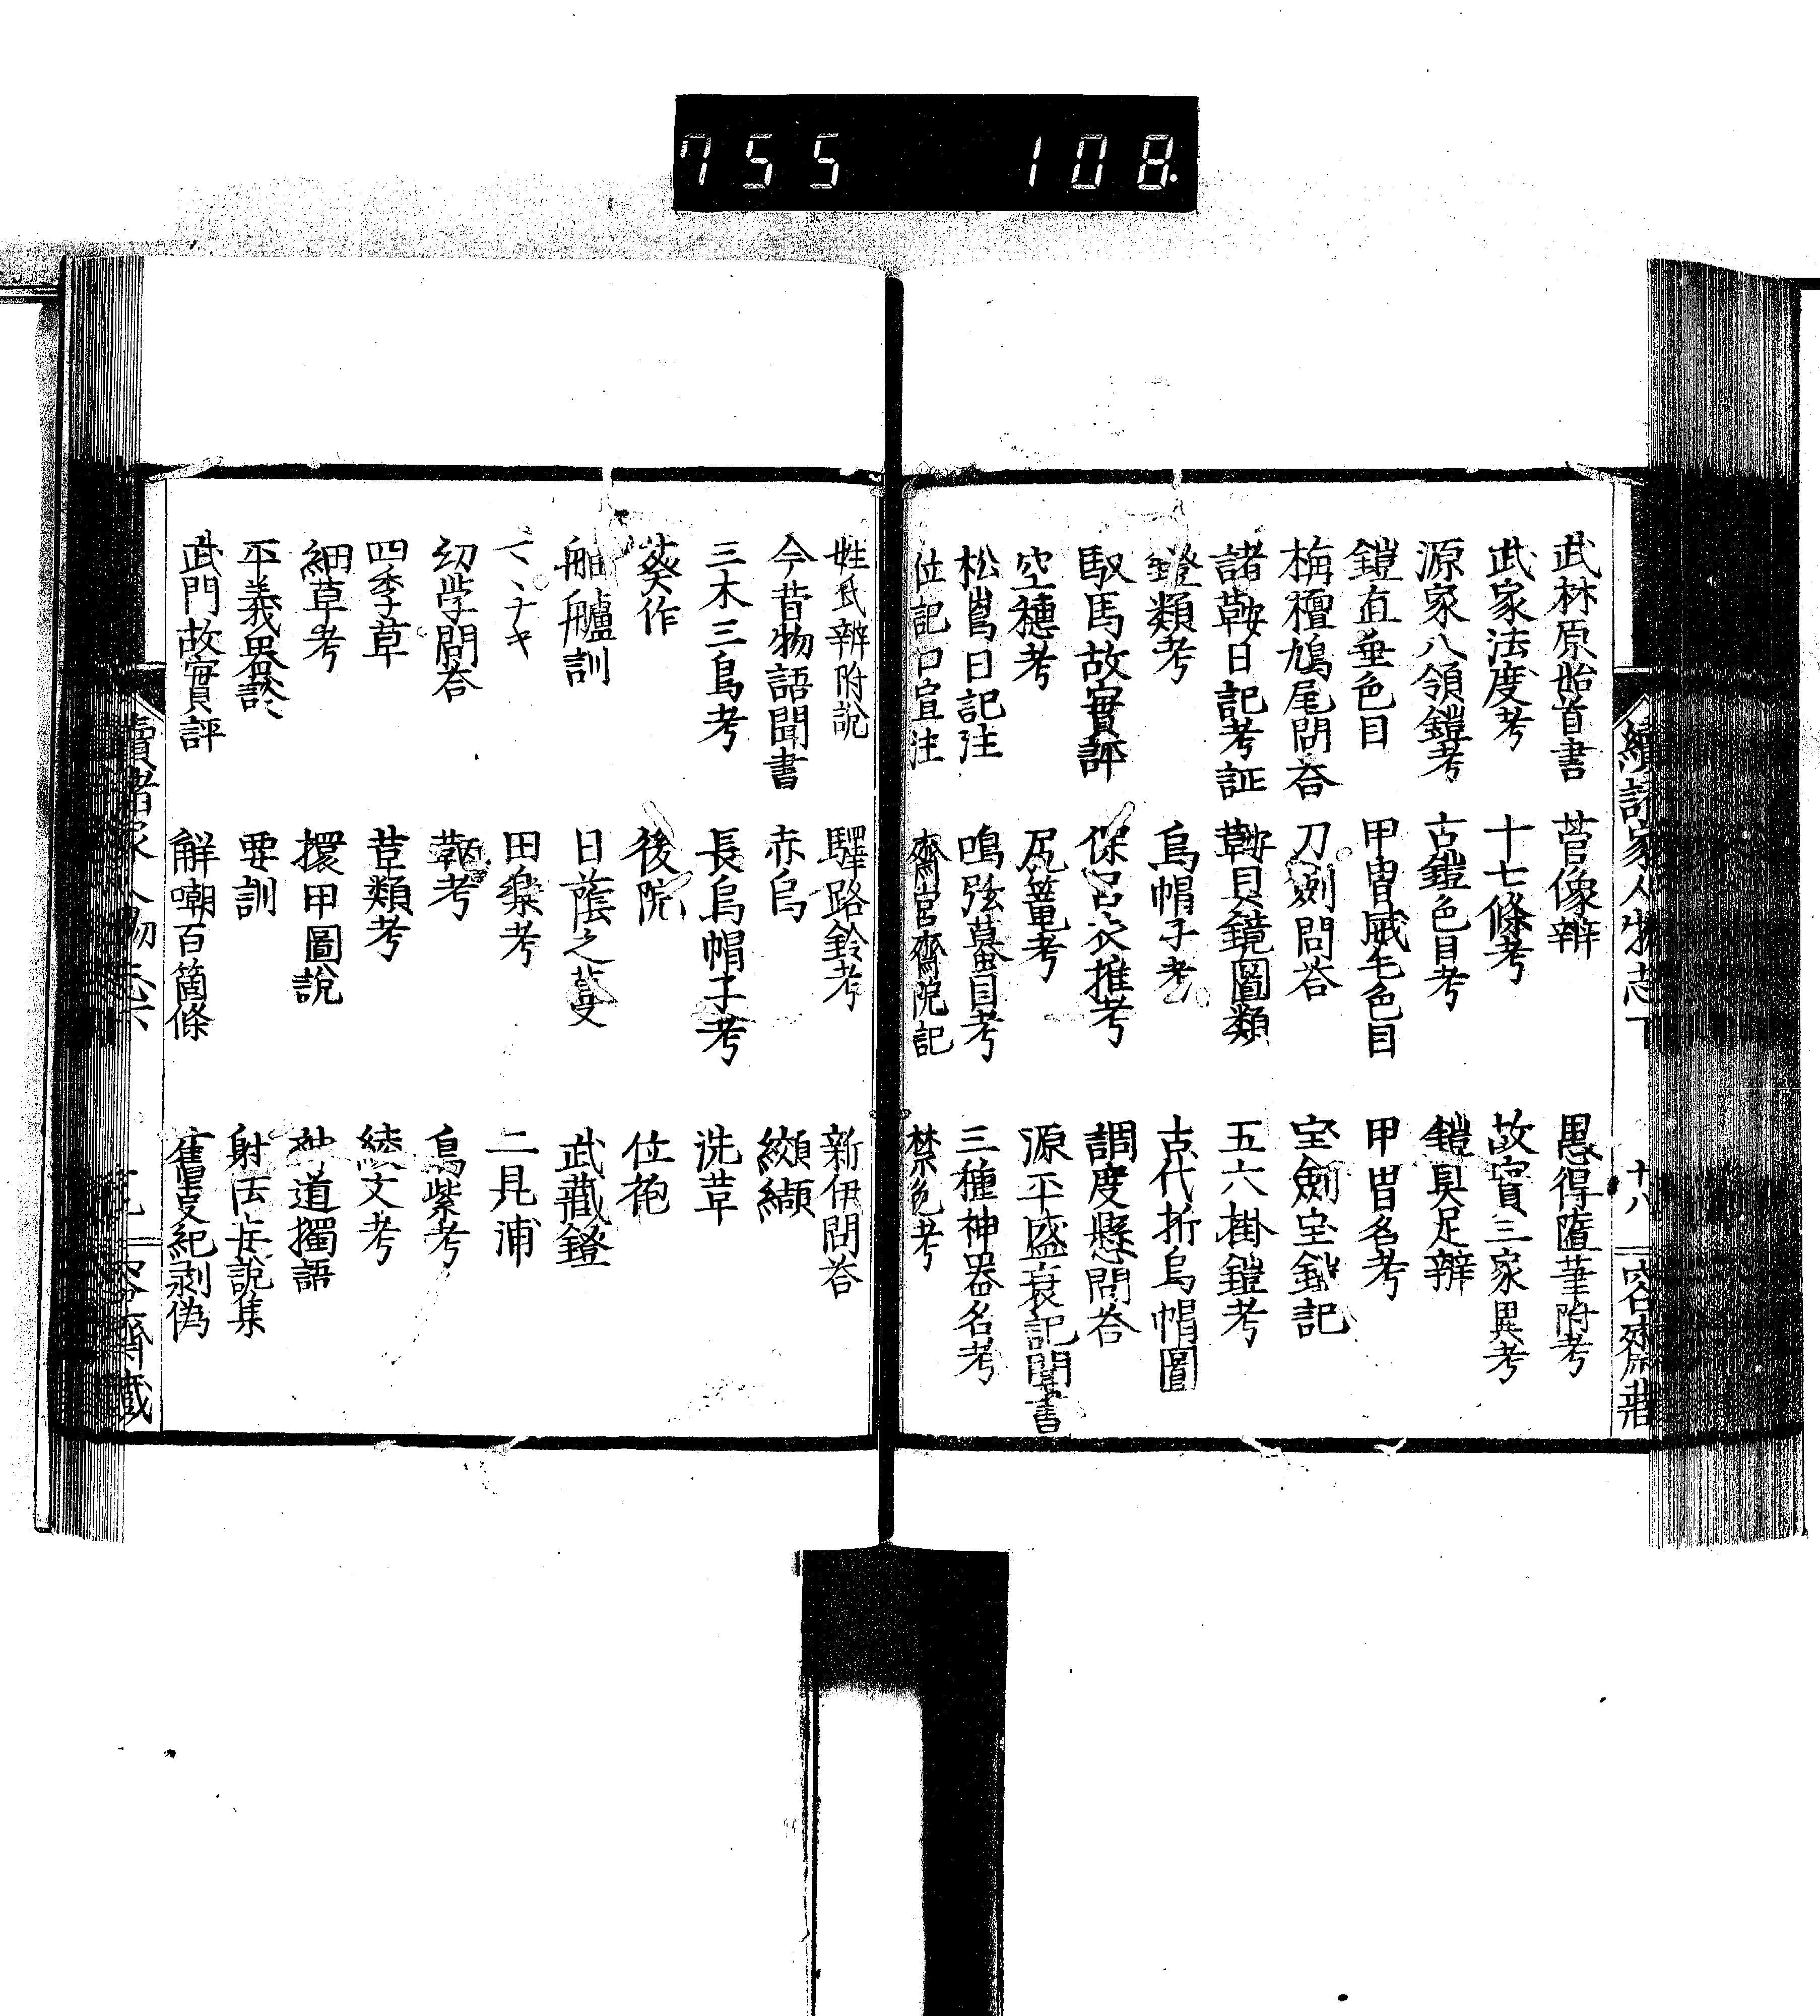 755 108.
武林原始首書 菅像辨 愚得隨筆附考
武家法度考 十七條考 故實三家異考
源家八領鎧考 古鎧色目考 鎧具足辨
鎧直垂色目 甲冑威毛色目 甲冑名考
栴檀鳩尾問答 刀劍問答 宝劍宝鈴記
諸鞍日記考証 鞍貝鏡圖類 五六掛鎧考
鐙類考 烏帽子考 古代折烏帽圖
馭馬故實評 保呂衣推考 調度懸問答
空穗考 尻篭考 源平盛衰記聞書
松嶌日記注 鳴弦蟇目考 三種神器名考
位記口宣注 齋宮齋院記 禁色考
續諸家人物志下 十八 容齋藏
姓氏辨附説 驛路鈴考 新伊問答
今昔物語聞書 赤烏 纐纈
三木三鳥考 長烏帽子考 洗革
葵作 後院 位袍
舳艫訓 日蔭之蔓 武藏鐙
田樂考 二見浦
幼学問答 鞆考 烏紫考
四季草 韋類考 綾文考
細草考 擐甲圖說 神道獨語
平義器談 要訓 射法岳說集
武門故實評 解嘲百箇條 舊叓紀剥偽